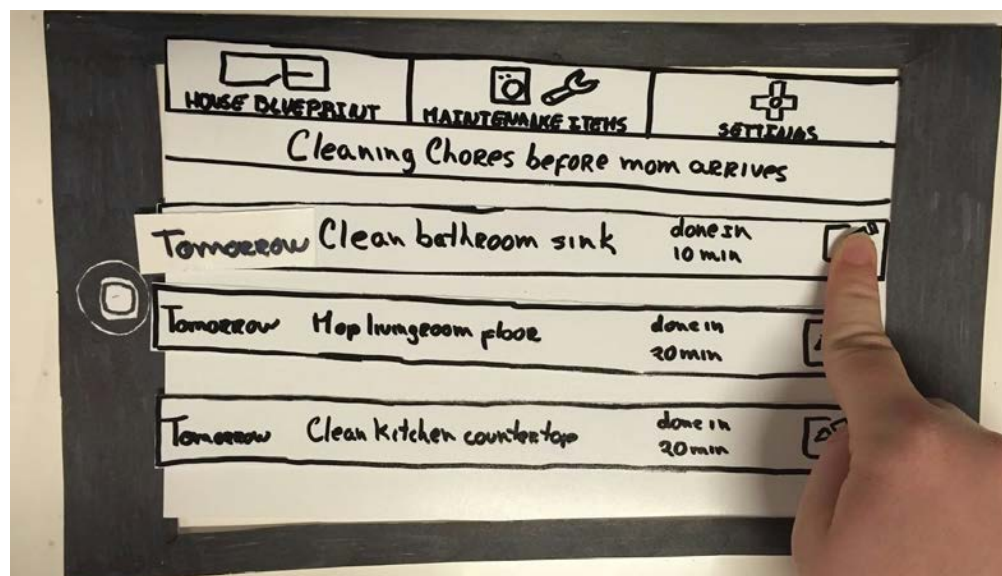 HOUSE BLUEPRINT
MAINTENANCE ITEMS
SETTINGS
Cleaning Chores before mom arrives
Tomorrow Clean bathroom sink done in 10 min
Tomorrow Mop livingroom floor done in 20 min
Tomorrow Clean kitchen countertop done in 20 min